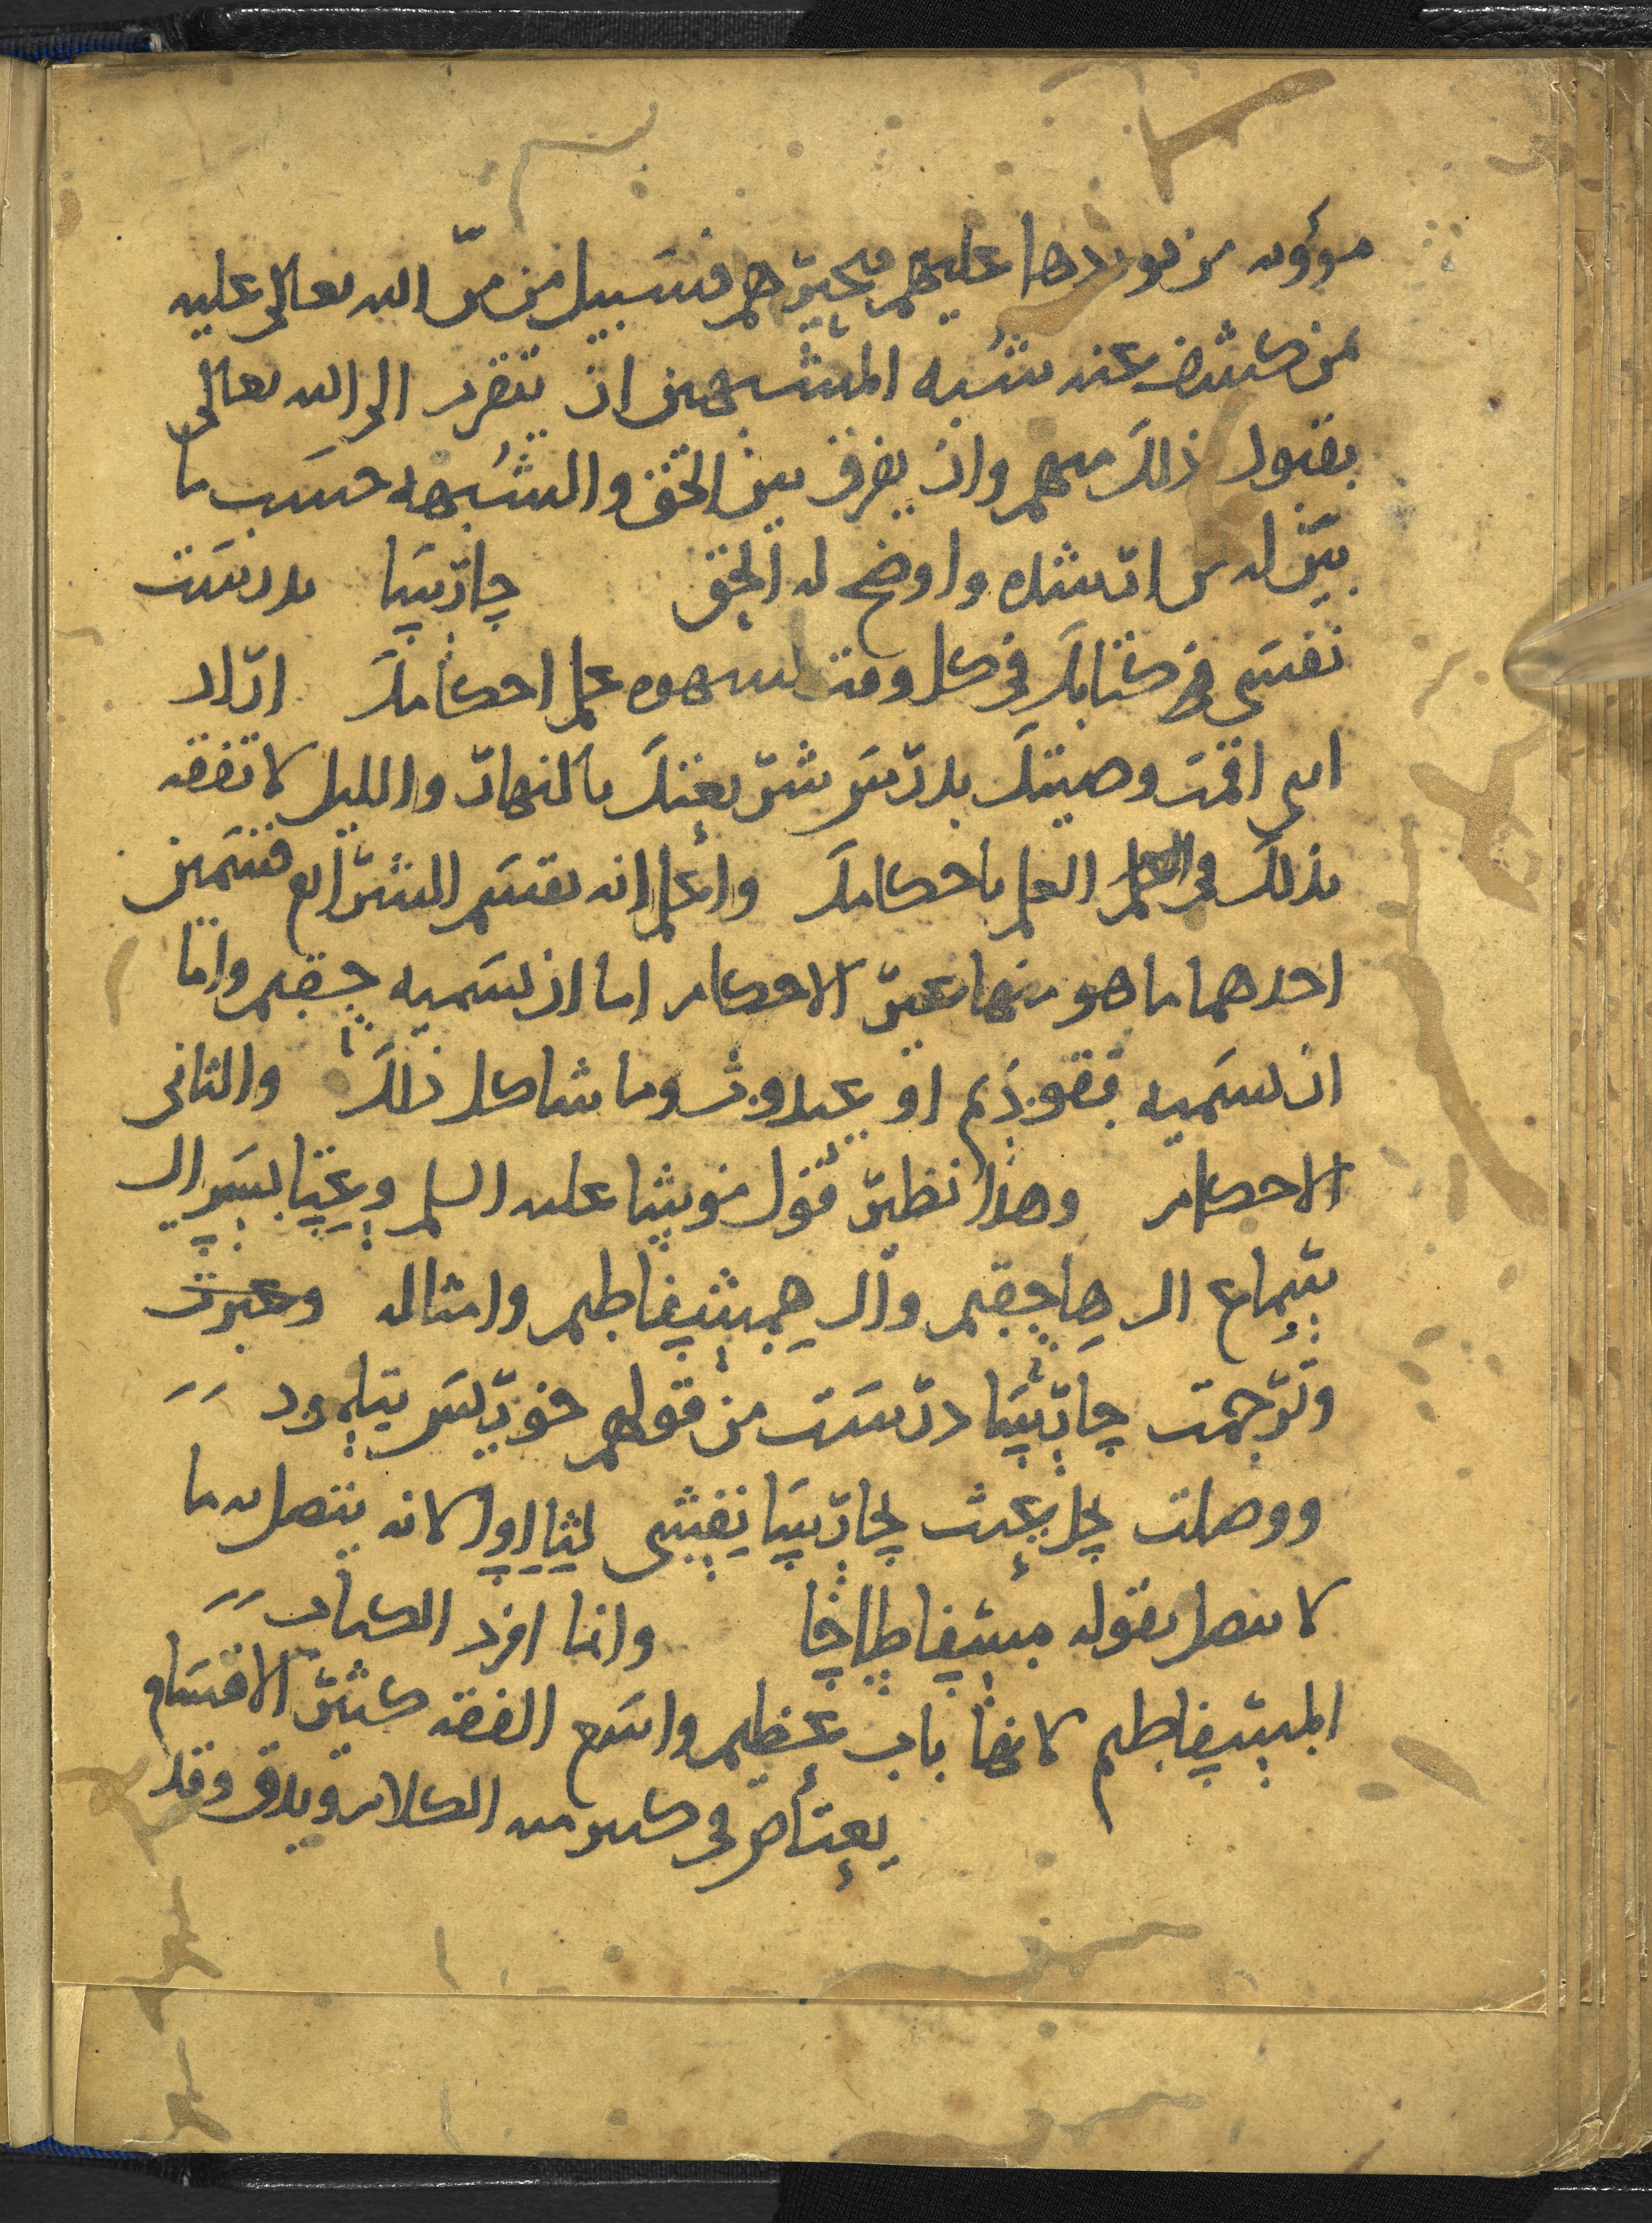 مؤونه من يوردها عليهم فيحيرهم فسبيل من منّ الله تعالى عليه
من كشف عنه شُبه المشبهين ان يتفرد الى الله تعالى
بقبول ذلك منهم وان يفرق بين الحق والشُبهه حسَب ما
بيّن له من ارشاده واوضح له الحق جارسا درست
نفسي في كتابك في كل وقت لشهوه علم احكامك اراد
انى اقمت وصيتك بدرس شريعتك بالنهار والليل لاتفقه
بذلك في العلم باحكامك واعلم انه يقسم الشرائع قسمين
احدهما ما هو منها غير الاحكام اما ان نسميه حقيم واما
ان نسميه فقوذيم او عيدوث وما شاكل ذلك والثاني
الاحكام وهذا نظير قول موشا عليه السلم وعتا يسرال
شماع ال هاحقيم وال همشفاطيم وامثاله وعبرت
وترجمت جارسا درست من قولهم
ووصلت نفشي لانه يتصل به ما
لا يتصل بقوله مشفاطاخا وانما افرد الكتاب
المشفاطيم لانها باب عظيم واسَع الفقه كثير الاقسَام
يعتاص في كثير منه الكلام ويدق وقد